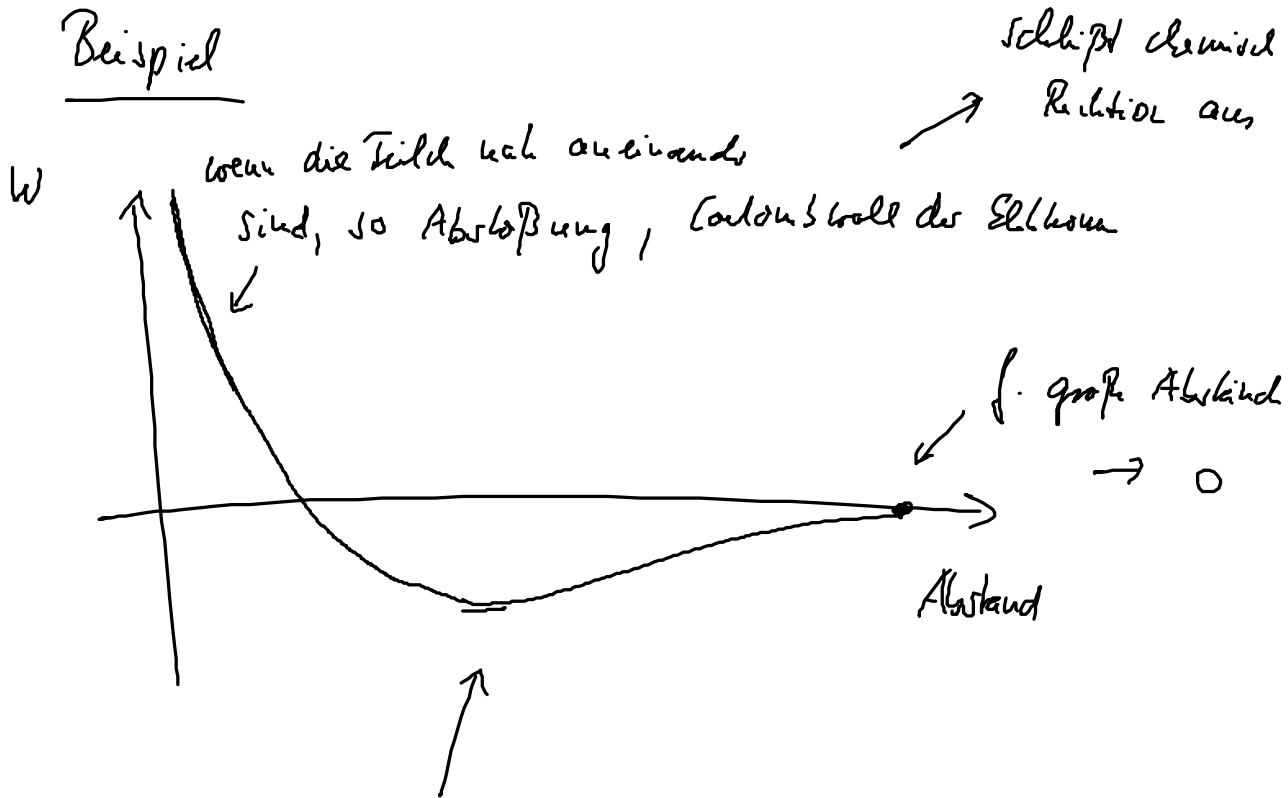 Beispiel
schließt chemisch
Reaktion aus
W
wenn die Teilch nah aneinander
sind, so Abstoßung, Coulombwall der Elektronen
f. große Abstände
→ 0
Abstand